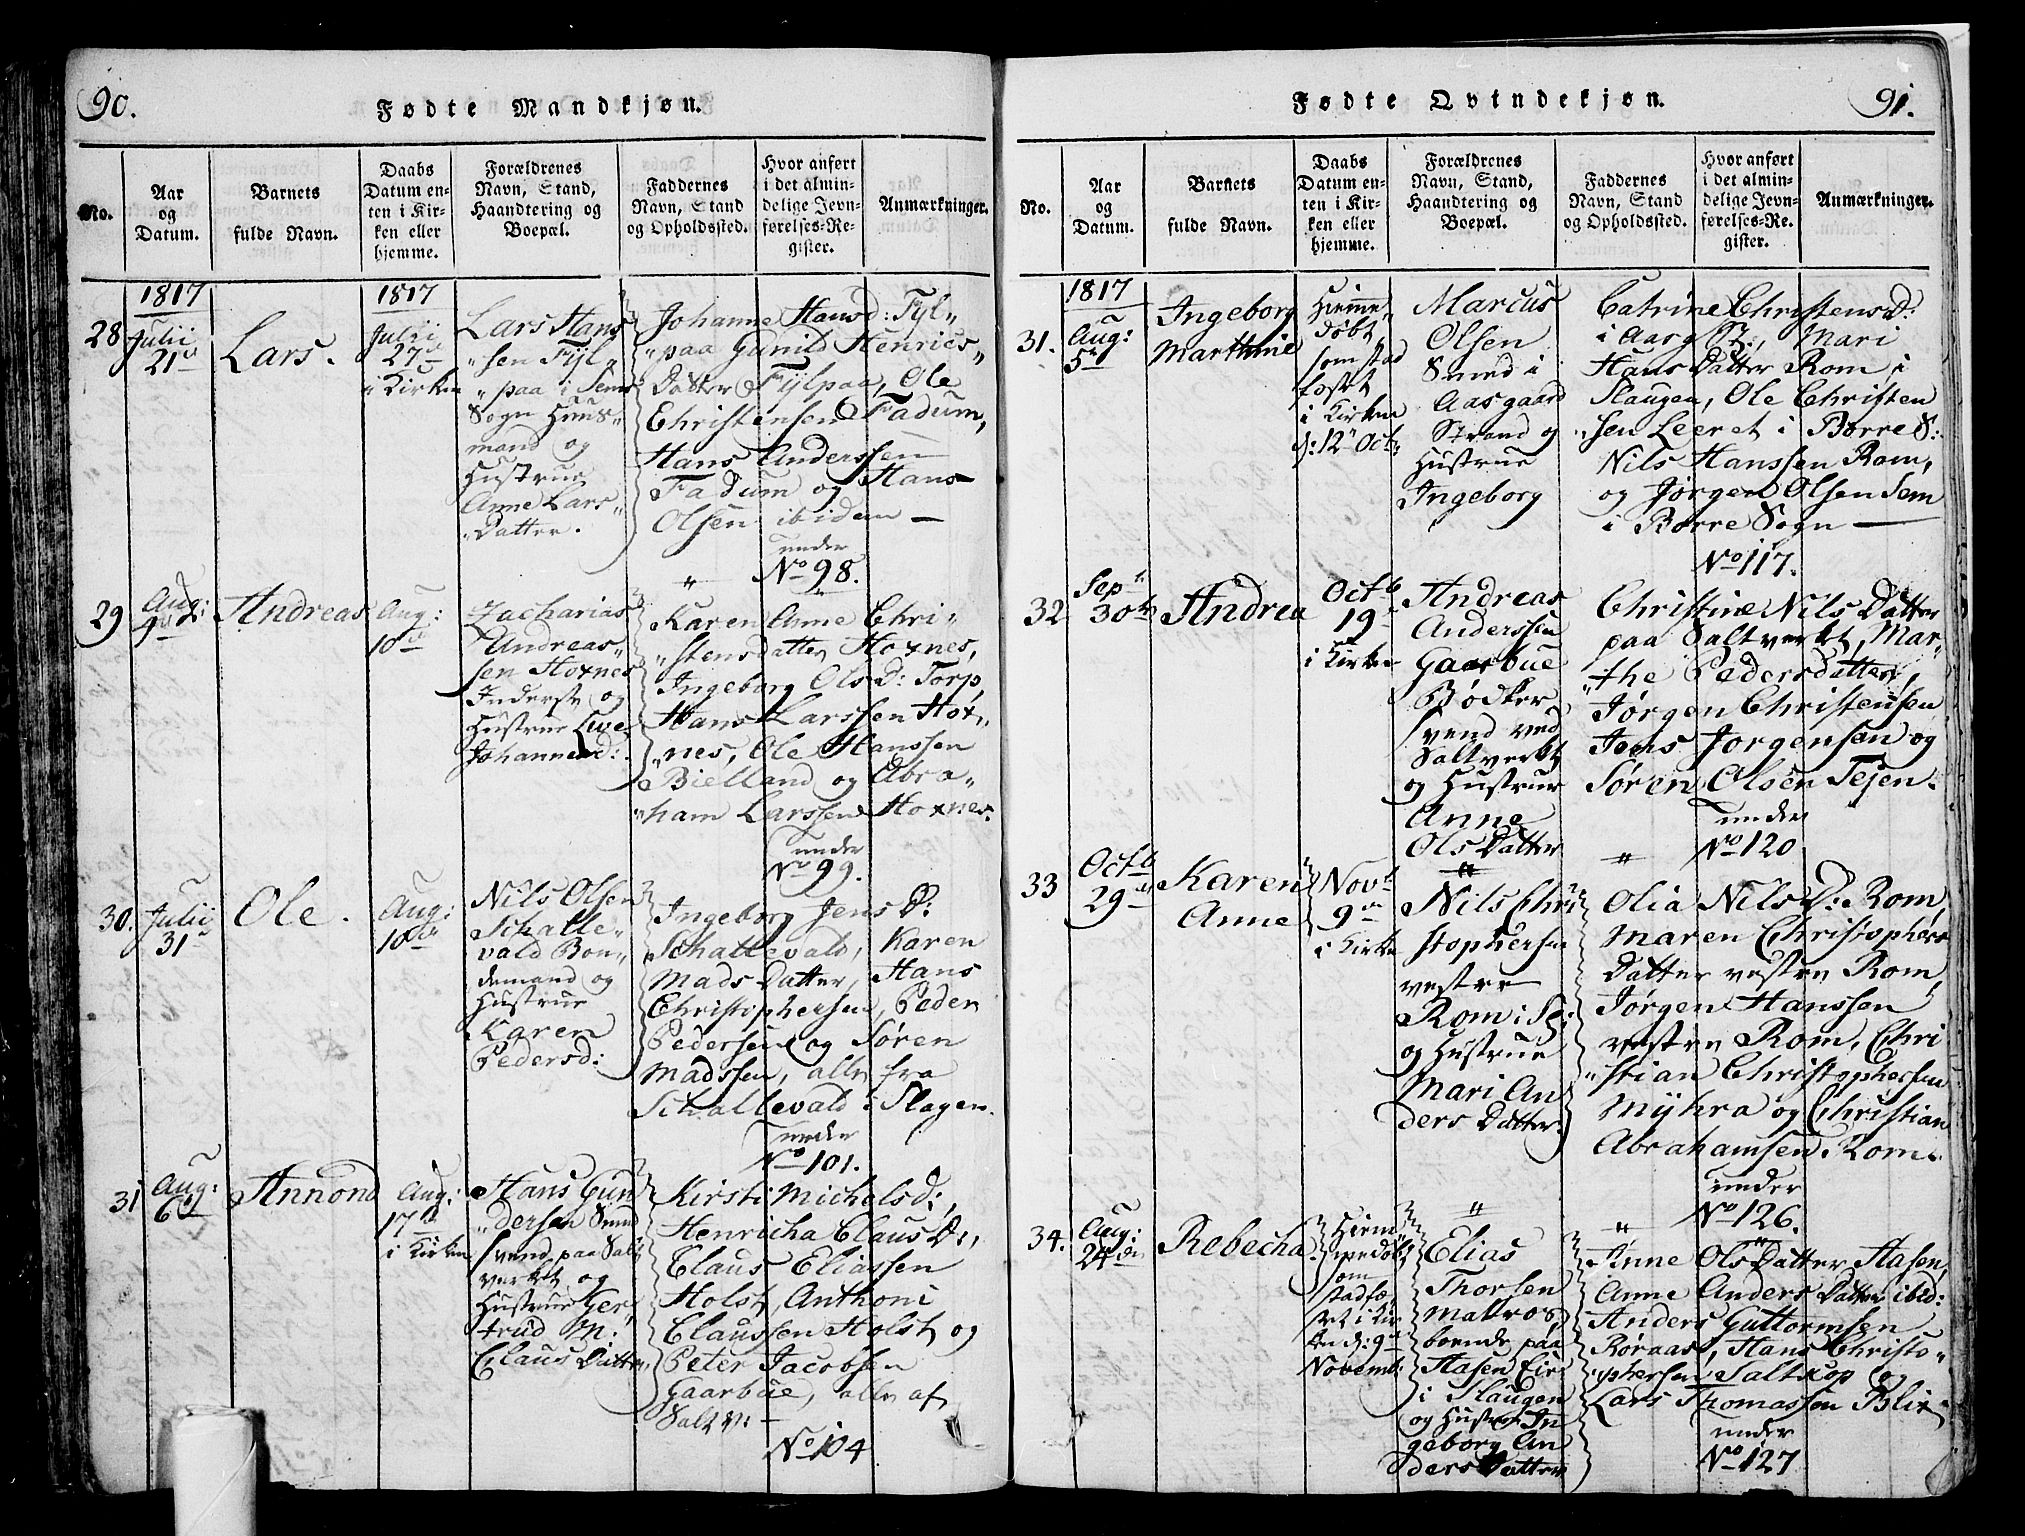 90.
Fødte Mandkjøn.
No.
Aar
og
Datum.
Barnets
fulde Navn.
Daabs
Datum en-
ten i Kir-
ken eller
hjemme.
Forældrenes
Navn, Stand,
Haandtering og
Boepæl.
Faddernes
Navn, Stand
og Opholdssted.
Hvor anført
i det almin-
delige Jevn-
førelses-Re-
gister.
Anmærkninger.
1817
28
Julii
21
Lars.
1817
Julii
27
i Kirken
Lars Hans
"sen Fÿl"
"paa i Sems
Sogn Huus"
mand og
Hustrue
Anne Lars"
"Datter.
Johanne Hansd: Fÿl"
"paa Gunild Henrics"
Datter Fÿlpaa, Ole
Christensen Fadum,
Hans Anderssen
Fadum og Hans
Olsen ibidem —
under
No 98.
29
Aug:
Andreas
Aug:
10
Zacharias
Andreas"
sen Hoxnes
Inderst og
Hustrue Live
Johannesd:
Karen Anne Chri"
"stensdatter Hoxnes,
Ingeborg Ols D: Torp,
Hans Larssen Hox"
"nes, Ole Hanssen
Bielland og Abra"
"ham Larssen Hoxnes.
under
No 99.
30.
Julii
31
Ole.
Aug:
10
Nils Olsen
Schalle"
vald Bon"
demand og
Hustrue
Karen
Pedersd:
Ingeborg Jens D:
Schallevald, Karen
Mads Datter, Hans
Christophersen, Peder
Pedersen og Søren
Madssen, alle fra
Schallevald i Slagen.
under
No 101.
31
Aug:
6
Annond
Aug:
17
i Kirken
Hans Gun
"dersen Smed
svend paa Salt
verket og
Hustrue Ger
trud M:
Claus Datter
Kirsti Michelsd:,
Henricha Claus D:,
Claus Eliassen
Holst, Anthoni
Claussen Holst og
Peter Jacobsen
Gaarbue, alle af
Saltv: —
No 104
91.
Fødte Qvindekjøn.
No.
Aar
og
Datum.
Barnets
fulde Navn.
Daabs
Datum en-
ten i Kir-
ken eller
hjemme.
Forældrenes
Navn, Stand,
Haandtering og
Boepæl.
Faddernes
Navn, Stand
og Opholdssted.
Hvor anført
i det almin-
delige Jevn-
førelses-Re-
gister.
Anmærkninger.
1817
31.
Aug:
5
Ingeborg
Marthine
Hiemme"
døbt
som stad
fæstet
i Kirken
d: 12 Oct:
Marcus
Olsen
Smed i
Aasgaard
Strand og
Hustrue
Ingeborg
Catrine Christens D:
i Aasg St:, Mari
Hans Datter Rom i
Slaugen, Ole Christen
"sen Leeret i Borre S:
Nils Hanssen Rom,
og Jørgen Olsen Sem
i Borre Sogn —
No 117.
32
Sep
30
Andrea
Octb
19
i Kirken
Andreas
Anderssen
Gaarbue
Bødker
svend ved
Saltverket
og Hustrue
Anne
Ols Datter
Christine Nils Datter
paa Saltverket, Mar"
"the Pedersdatter,
Jørgen Christensen
Jens Jørgensen og
Søren Olsen Tejen.
under
No 120
33
Octb
29
Karen
Anne
Nov
9
i Kirken
Nils Chri
stophersen
vestre
Rom i Sl:
og Hustrue
Mari An
ders Datter.
Olia Nils D: Rom,
Maren Christophers
Datter vestre Rom,
Jørgen Hanssen
vestre Rom, Chri
"stian Christophersen
Mÿhra og Christian
Abrahamsen Rom.
under
No 126.
34.
Aug:
24
Rebecha
Hiem"
medøbt
som
stadfæ
stet i Kir
ken d: 9
Novemb:
Elias
Thorsen
Matros,
boende paa
Hasen Eie
i Slaugen
og Hustrue In
geborg An
ders Datter
Anne Ols Datter Hasen,
Anne Anders Datter ibid:
Anders Guttormsen
Røraas, Hans Christo"
"phersen Saltkop og
Lars Thomassen Blix
under
No 127